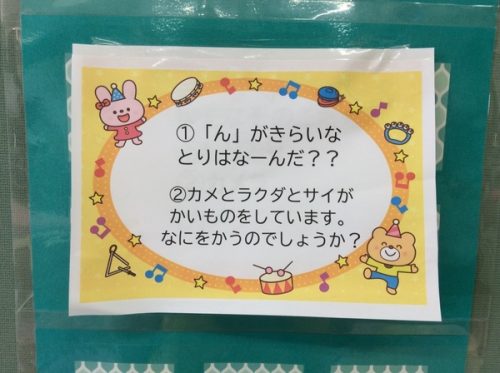 ①「ん」がきらいな
とりはなーんだ？？
②カメとラクダとサイが
かいものをしています。
なにをかうのでしょうか？